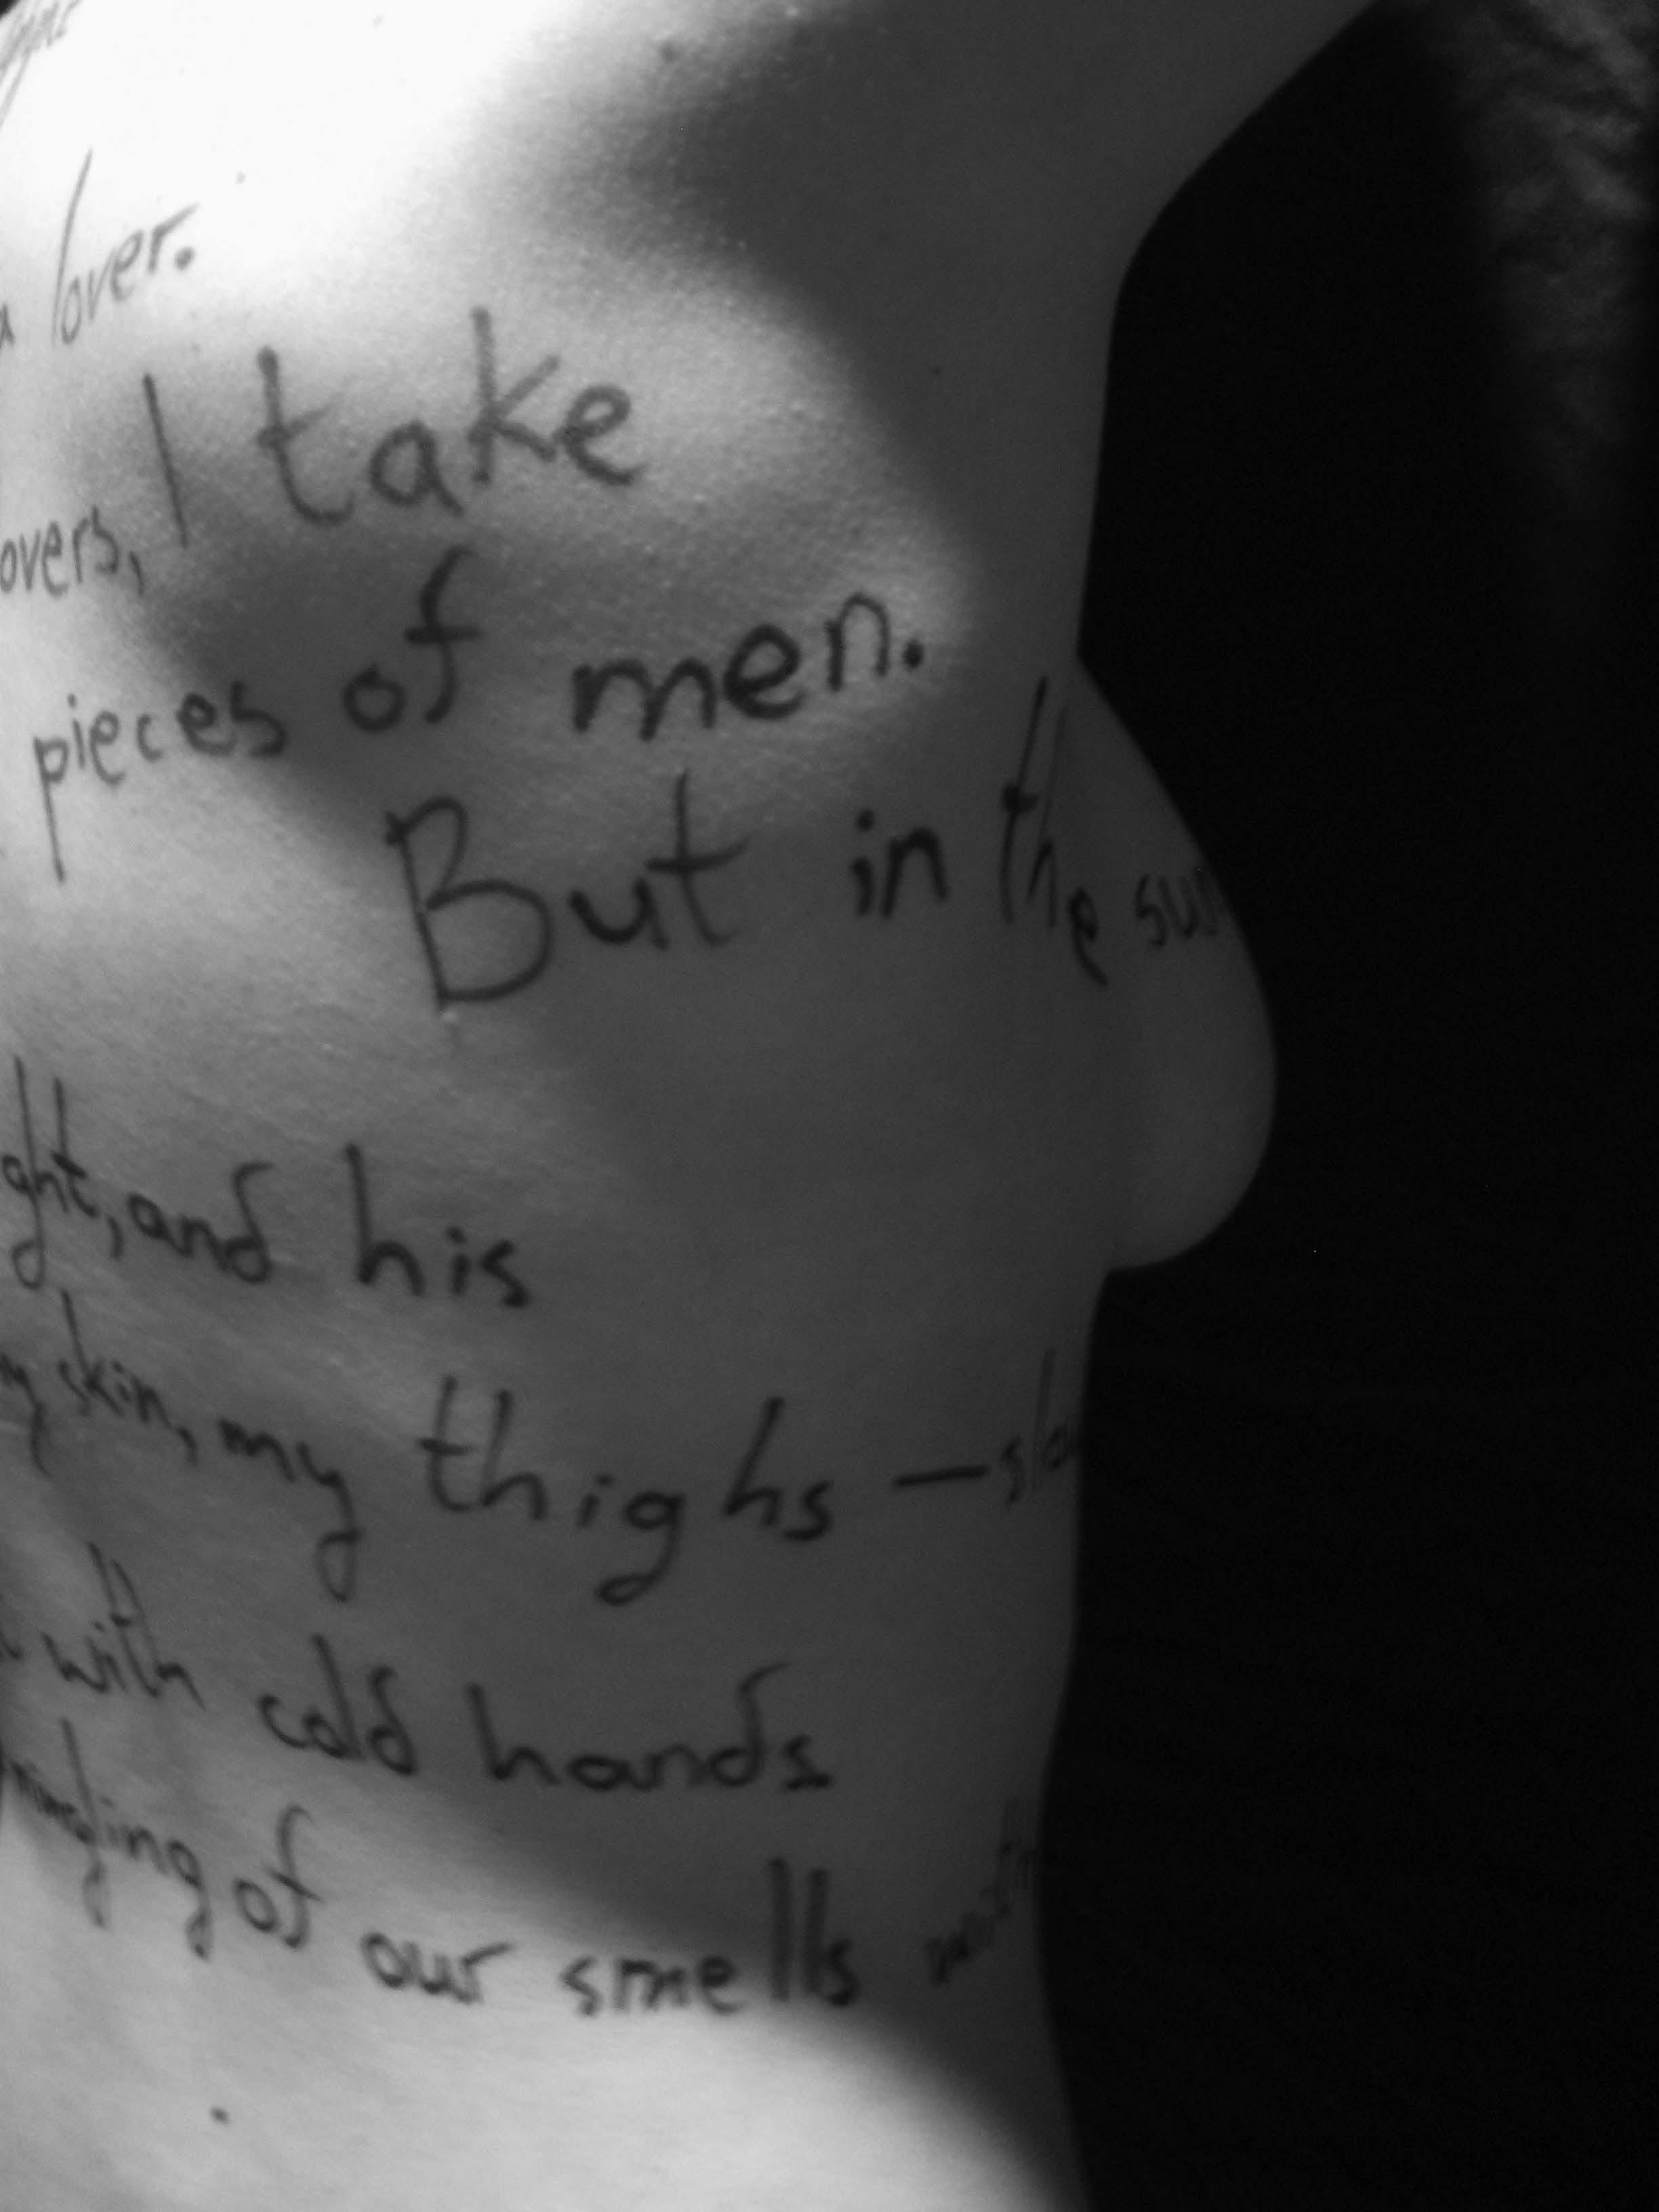 lover.
overs, I take
pieces of men.
But in the sun
ght, and his
skin, my thighs —
with cold hands
mingling of our smells